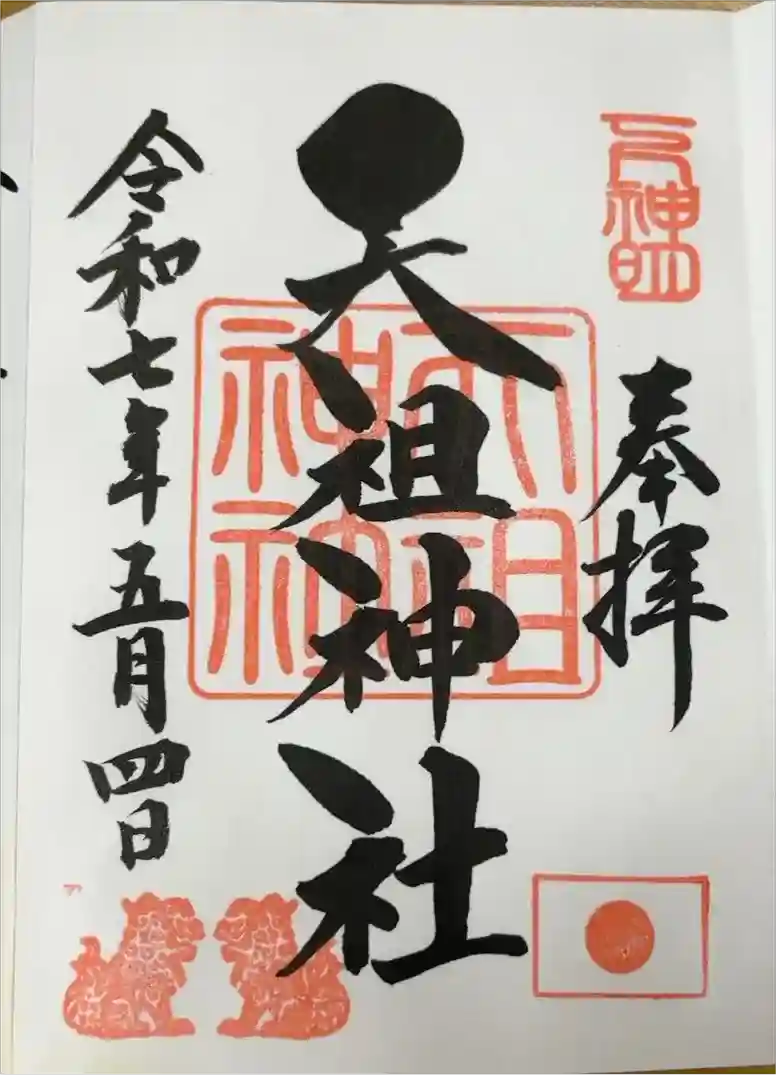 奉拝
天祖神社
天祖神社
令和七年五月四日